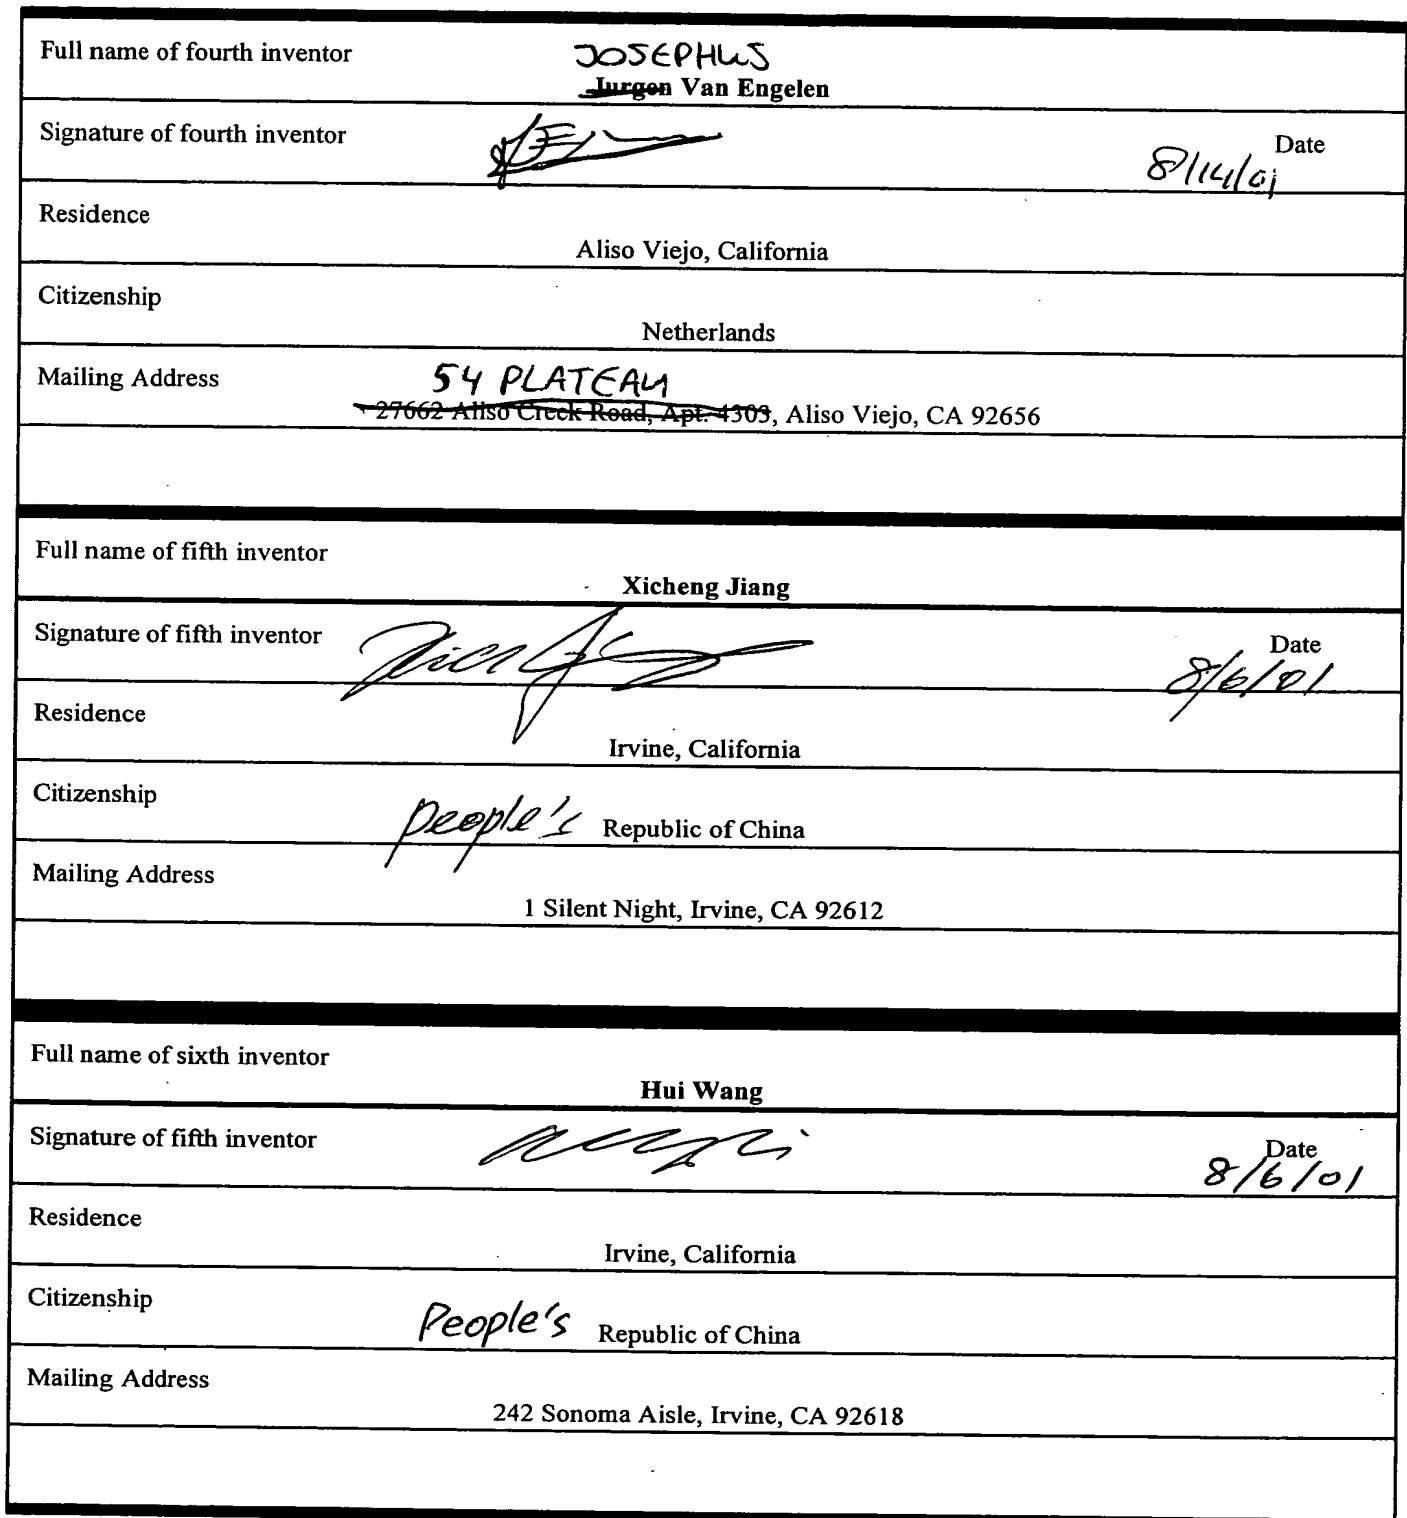 Full name of fourth inventor
JOSEPHUS
Jurgen Van Engelen
Signature of fourth inventor
Date
8/14/01
Residence
Aliso Viejo, California
Citizenship
Netherlands
Mailing Address
54 PLATEAU
27662 Aliso Creek Road, Apt. 4303, Aliso Viejo, CA 92656
Full name of fifth inventor
Xicheng Jiang
Signature of fifth inventor
Date
8/6/01
Residence
Irvine, California
Citizenship
people's Republic of China
Mailing Address
1 Silent Night, Irvine, CA 92612
Full name of sixth inventor
Hui Wang
Signature of fifth inventor
Date
8/6/01
Residence
Irvine, California
Citizenship
People's Republic of China
Mailing Address
242 Sonoma Aisle, Irvine, CA 92618